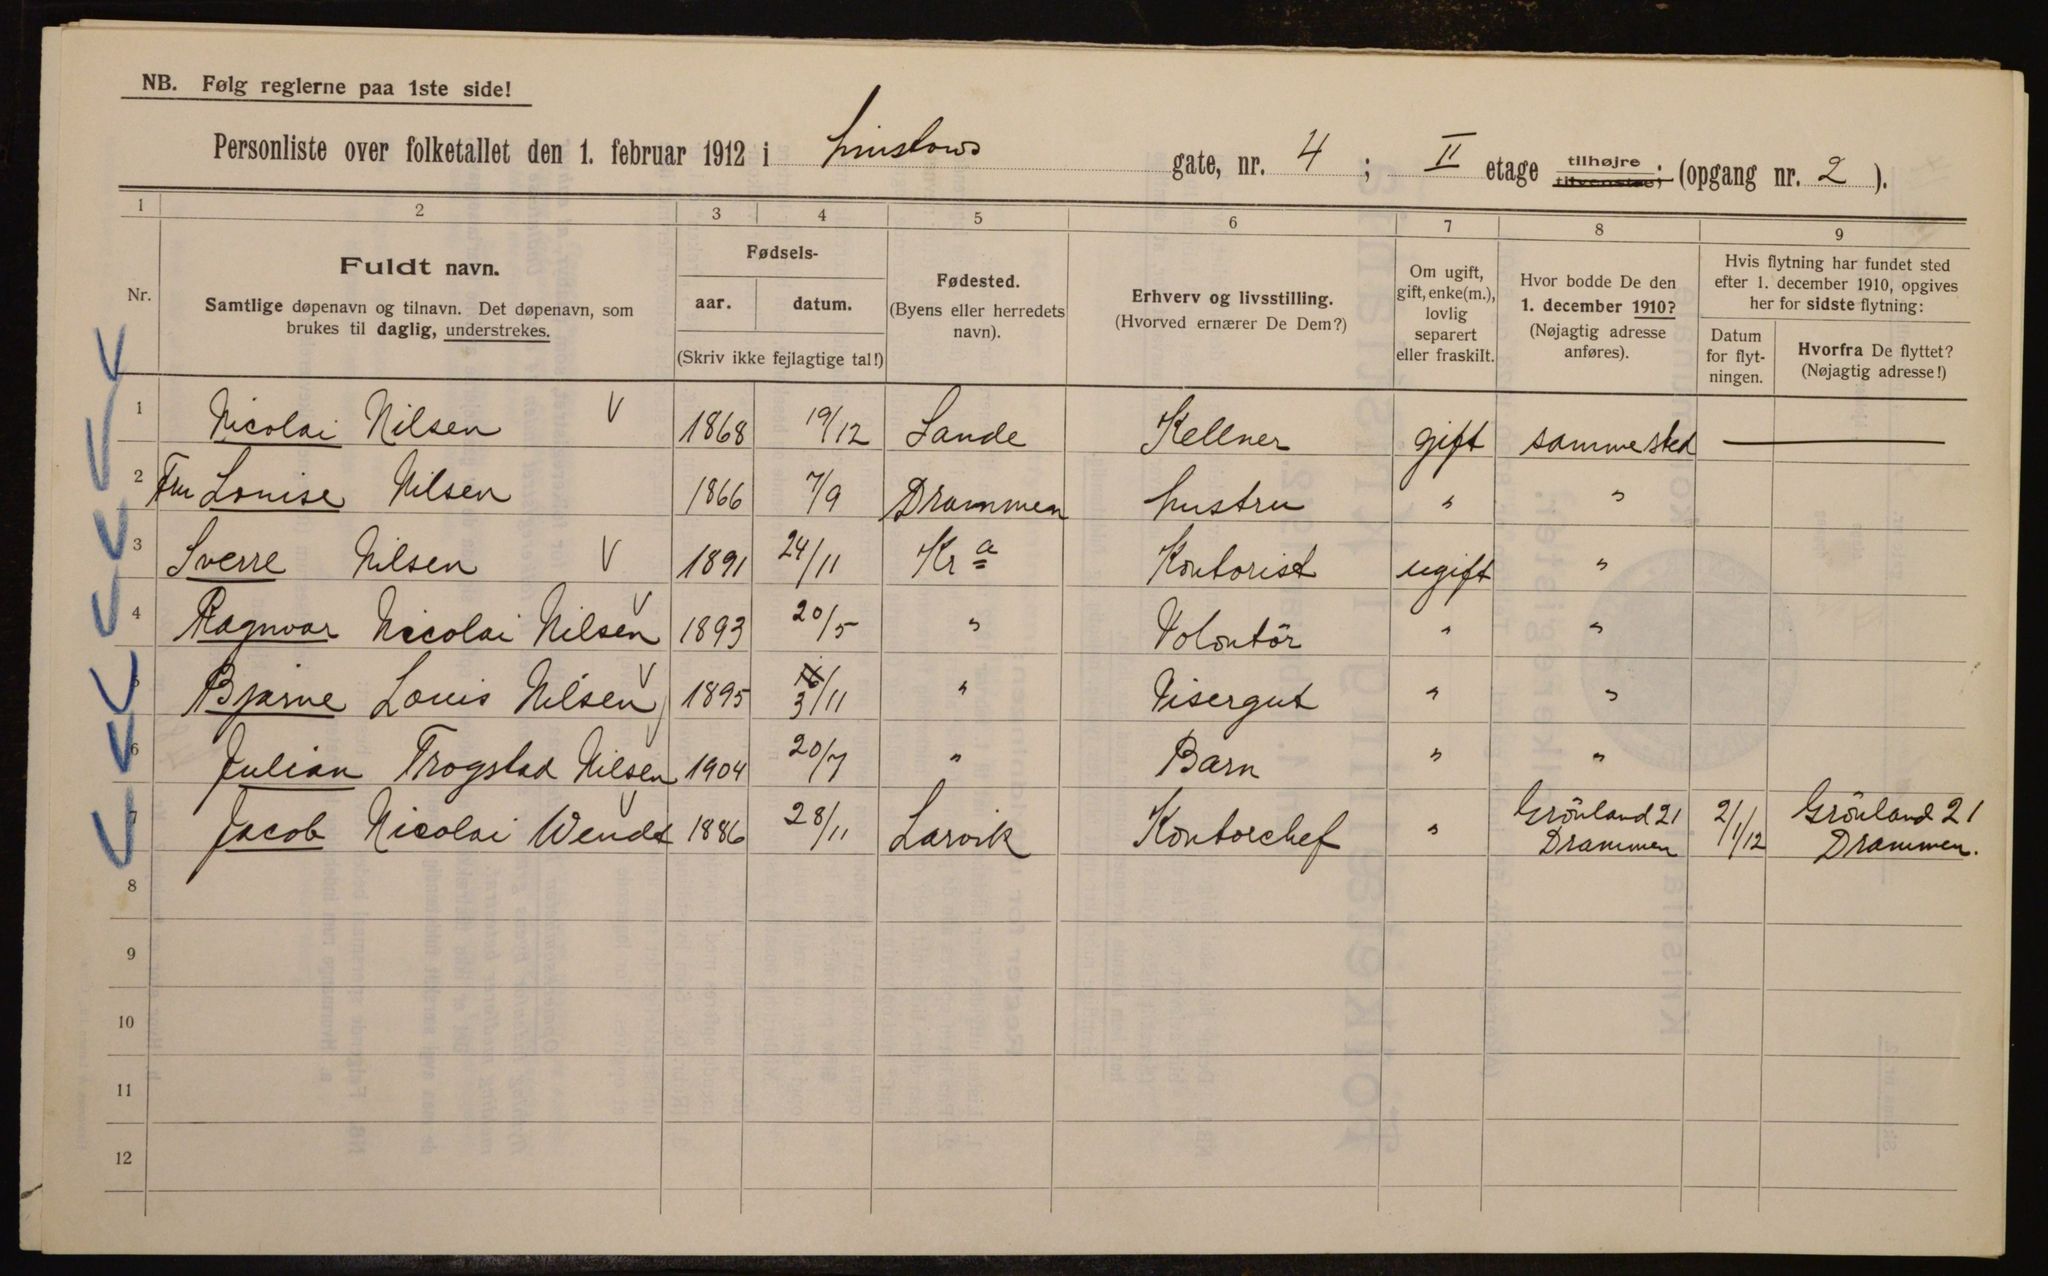 NB. Følg reglerne paa 1ste side!
Personliste over folketallet den 1. februar 1912 i Linstows gate, nr. 4 ; II etage tilhøjre tilvenstre; (opgang nr. 2 ).
1 2 3 4 5 6 7 8 9
Nr.
Fuldt navn.
Samtlige døpenavn og tilnavn. Det døpenavn, som
brukes til daglig, understrekes.
Fødsels-
aar. datum.
(Skriv ikke fejlagtige tal!)
Fødested.
(Byens eller herredets
navn).
Erhverv og livsstilling.
(Hvorved ernærer De Dem?)
Om ugift,
gift, enke(m.),
lovlig
separert
eller fraskilt.
Hvor bodde De den
1. december 1910?
(Nøjagtig adresse
anføres).
Hvis flytning har fundet sted
efter 1. december 1910, opgives
her for sidste flytning:
Datum
for flyt-
ningen.
Hvorfra De flyttet?
(Nøjagtig adresse!)
1 Nicolai Nilsen 1868 19/12 Sande Kellner gift sammested —
2 Fru Louise Nilsen 1866 7/9 Drammen hustru " "
3 Sverre Nilsen 1891 24/11 Kra Kontorist ugift "
4 Ragnvar Nicolai Nilsen 1893 20/5 " Volontör " "
5 Bjarne Louis Nilsen 1895 3/11 " Visergut " "
6 Julian Trogstad Nilsen 1904 20/7 " Barn " "
7 Jacob Nicolai Wendt 1886 28/11 Larvik Kontorchef " Grönland 21 Drammen 2/1/12 Grönland 21 Drammen.
8
9
10
11
12